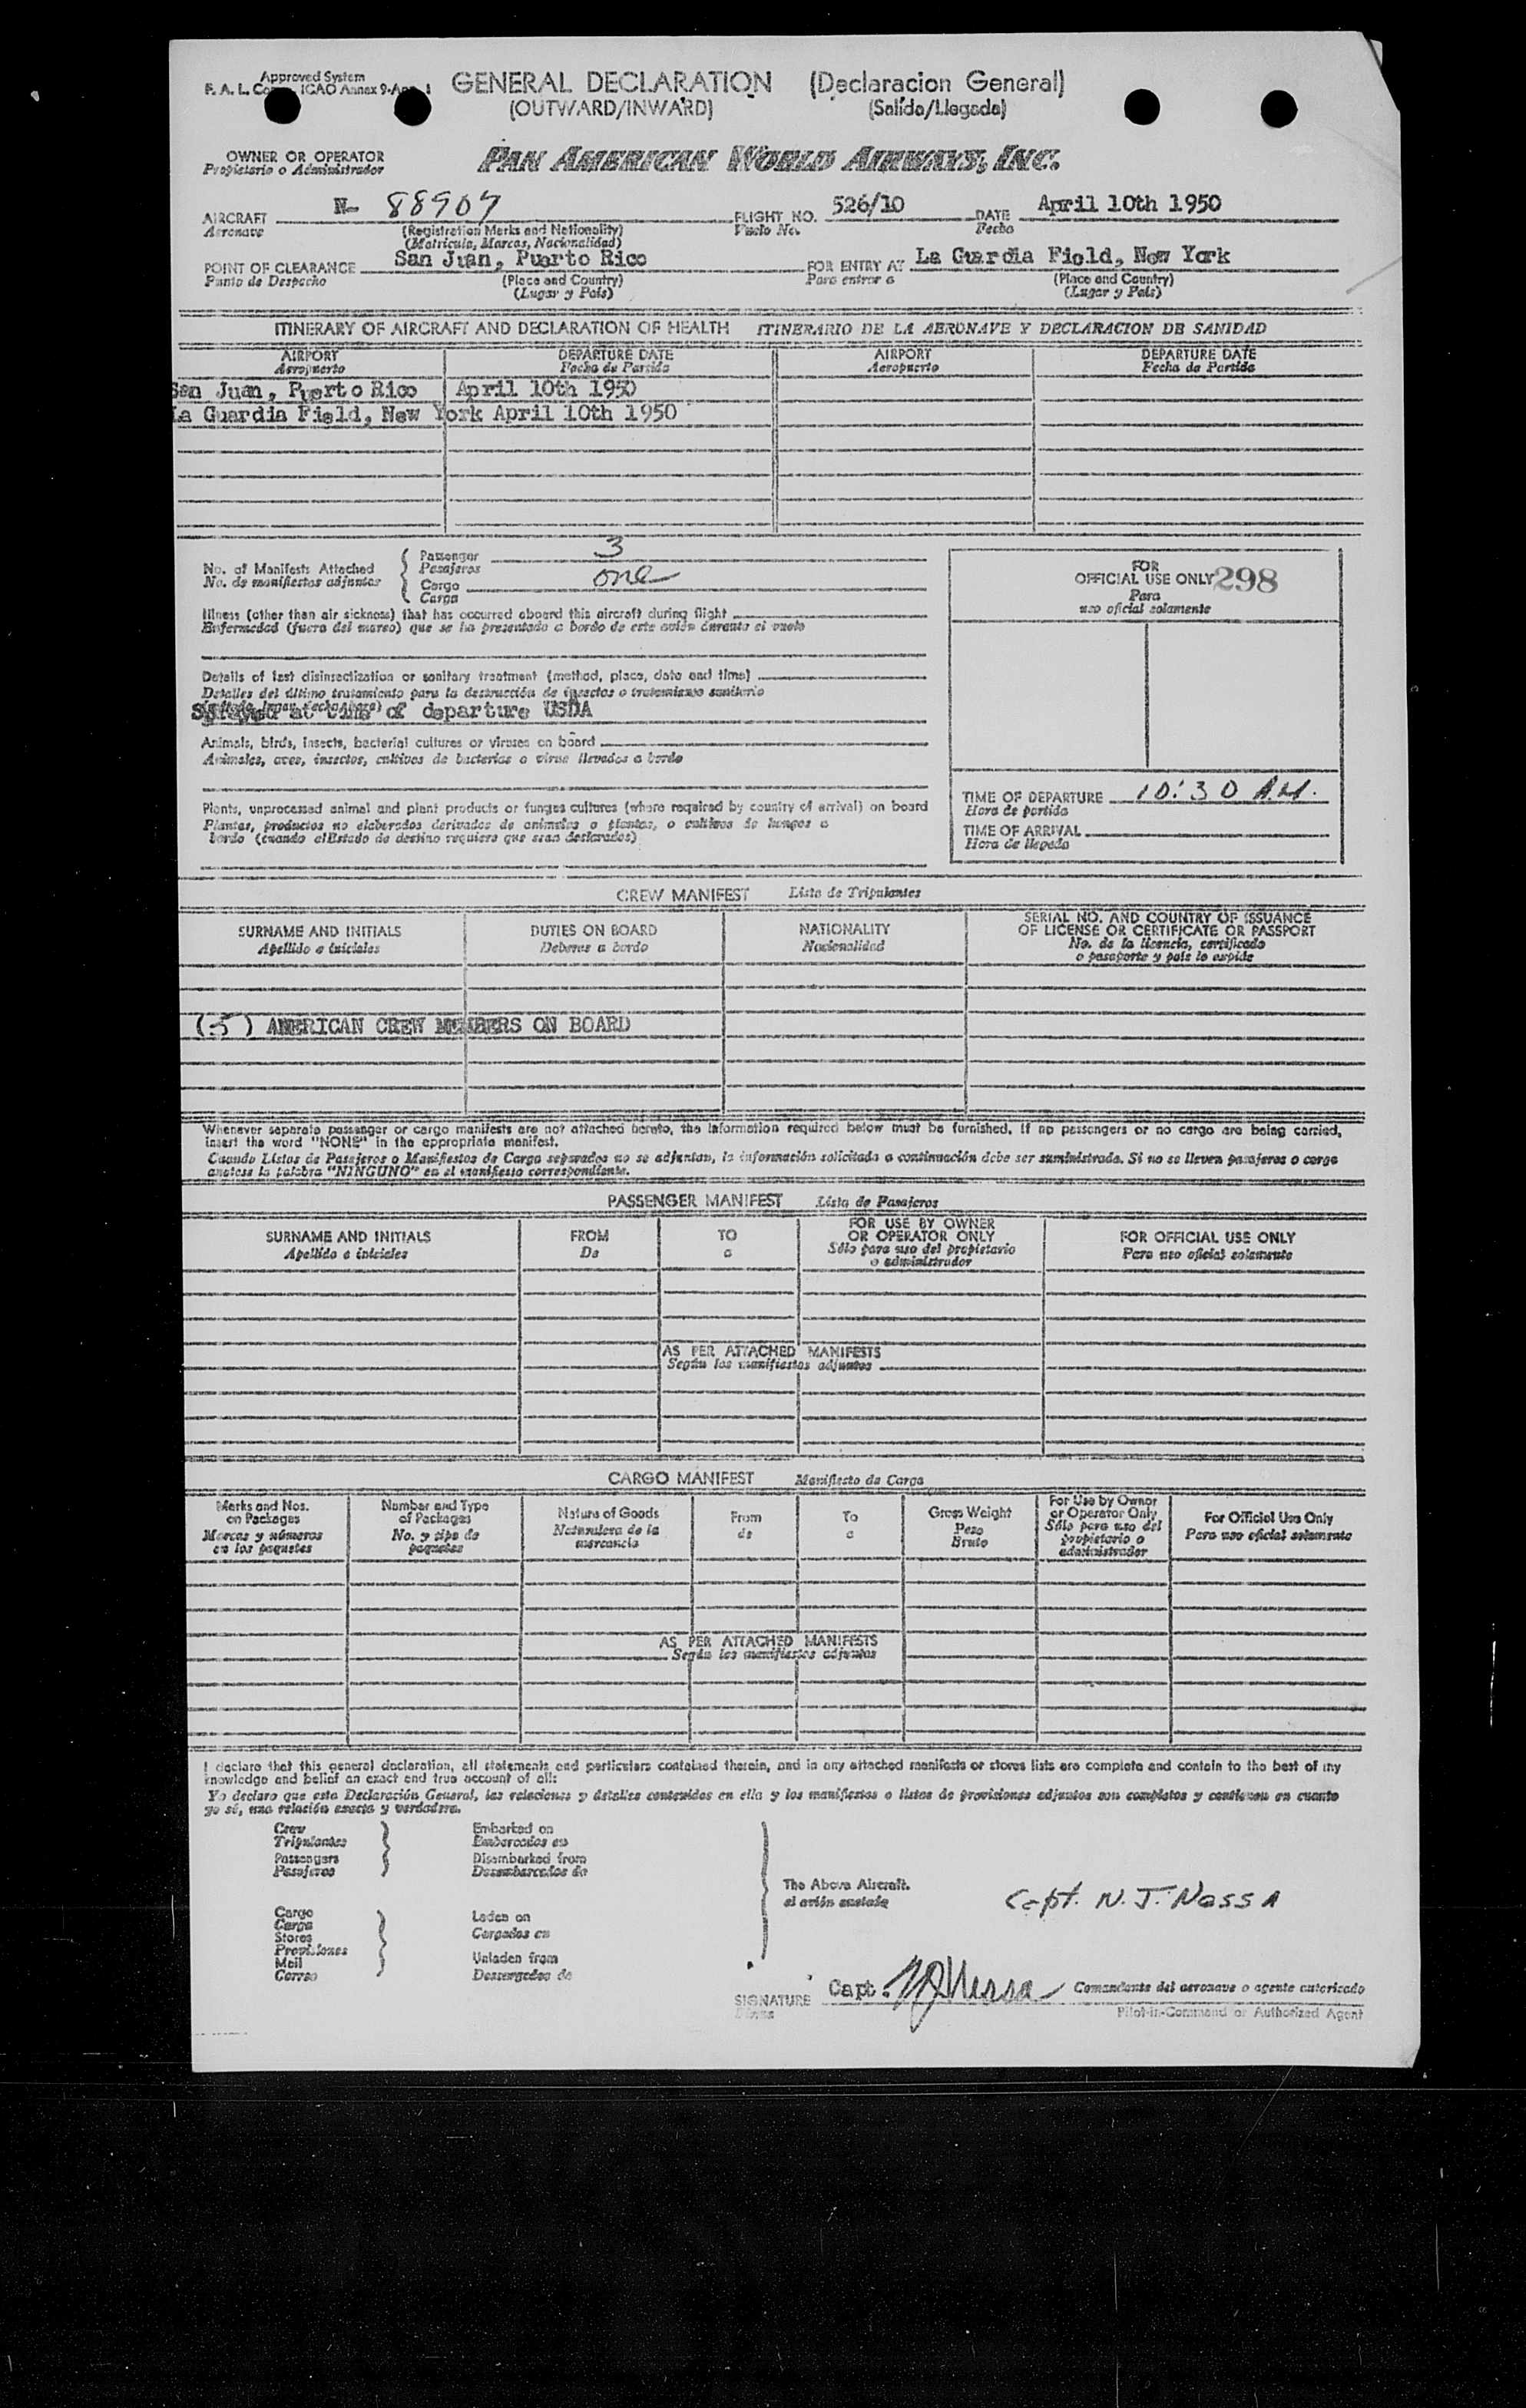 Approved System
F. A. L. Co ICAO Annex 9-App. 1
GENERAL DECLARATION (Declaracion General)
(OUTWARD/INWARD) (Salida/Llegada)
OWNER OR OPERATOR
Propietario o Administrador
PAN AMERICAN WORLD AIRWAYS, INC.
AIRCRAFT N- 88907 FLIGHT NO. 526/10 DATE April 10th 1950
Aeronave (Registration Marks and Nationality) Vuelo No. Fecha
(Matricula, Marcas, Nacionalidad)
POINT OF CLEARANCE San Juan, Puerto Rico FOR ENTRY AT La Guardia Field, New York
Punto de Despacho (Place and Country) Para entrar a (Place and Country)
(Lugar y País) (Lugar y País)
ITINERARY OF AIRCRAFT AND DECLARATION OF HEALTH ITINERARIO DE LA AERONAVE Y DECLARACION DE SANIDAD
AIRPORT DEPARTURE DATE AIRPORT DEPARTURE DATE
Aeropuerto Fecha de Partida Aeropuerto Fecha de Partida
San Juan, Puerto Rico April 10th 1950
La Guardia Field, New York April 10th 1950
No. of Manifests Attached
No. de manifiestos adjuntos
Passenger 3
Pasajeros
Cargo one
Carga
FOR
OFFICIAL USE ONLY 298
Para
uso oficial solamente
Illness (other than air sickness) that has occurred aboard this aircraft during flight
Enfermedad (fuera del mareo) que se ha presentado a bordo de este avión durante el vuelo
Details of last disinsectization or sanitary treatment (method, place, date and time)
Detalles del último tratamiento para la destrucción de insectos o tratamiento sanitario
Sprayed at time of departure USDA
Animals, birds, insects, bacterial cultures or viruses on board
Animales, aves, insectos, cultivos de bacterias o virus llevados a bordo
Plants, unprocessed animal and plant products or fungus cultures (where required by country of arrival) on board
Plantas, productos no elaborados derivados de animales o plantas, o cultivos de hongos a
bordo (cuando el Estado de destino requiere que sean declarados)
TIME OF DEPARTURE 10:30 A.M.
Hora de partida
TIME OF ARRIVAL
Hora de llegada
CREW MANIFEST Lista de Tripulantes
SURNAME AND INITIALS DUTIES ON BOARD NATIONALITY SERIAL NO. AND COUNTRY OF ISSUANCE
OF LICENSE OR CERTIFICATE OR PASSPORT
Apellido e iniciales Deberes a bordo Nacionalidad No. de la licencia, certificado
o pasaporte y país lo expide
(5) AMERICAN CREW MEMBERS ON BOARD
Whenever separate passenger or cargo manifests are not attached hereto, the information required below must be furnished. If no passengers or no cargo are being carried,
insert the word "NONE" in the appropriate manifest.
Cuando Listas de Pasajeros o Manifiestos de Carga separados no se adjuntan, la información solicitada a continuación debe ser suministrada. Si no se llevan pasajeros o carga
anótese la palabra "NINGUNO" en el manifiesto correspondiente.
PASSENGER MANIFEST Lista de Pasajeros
SURNAME AND INITIALS FROM TO FOR USE BY OWNER
OR OPERATOR ONLY FOR OFFICIAL USE ONLY
Apellido e iniciales De a Sólo para uso del propietario
o administrador Para uso oficial solamente
AS PER ATTACHED MANIFESTS
Según los manifiestos adjuntos
CARGO MANIFEST Manifiesto de Carga
Marks and Nos.
on Packages
Marcas y números
en los paquetes
Number and Type
of Packages
No. y tipo de
paquetes
Nature of Goods
Naturaleza de la
mercancía
From
de
To
a
Gross Weight
Peso
Bruto
For Use by Owner
or Operator Only
Sólo para uso del
propietario o
administrador
For Official Use Only
Para uso oficial solamente
AS PER ATTACHED MANIFESTS
Según los manifiestos adjuntos
I declare that this general declaration, all statements and particulars contained therein, and in any attached manifests or stores lists are complete and contain to the best of my
knowledge and belief an exact and true account of all:
Yo declaro que esta Declaración General, las relaciones y detalles contenidos en ella y los manifiestos o listas de provisiones adjuntos son completos y contienen en cuanto
yo sé, una relación exacta y verdadera.
Crew
Tripulantes
Passengers
Pasajeros
Embarked on
Embarcados en
Disembarked from
Desembarcados de
Cargo
Carga
Stores
Provisiones
Mail
Correo
Laden on
Cargados en
Unladen from
Descargados de
The Above Aircraft.
el avión
Capt. N. J. Nassa
SIGNATURE Capt. NJNassa Comandante del aeronave o agente autorizado
Firma Pilot-in-Command or Authorized Agent